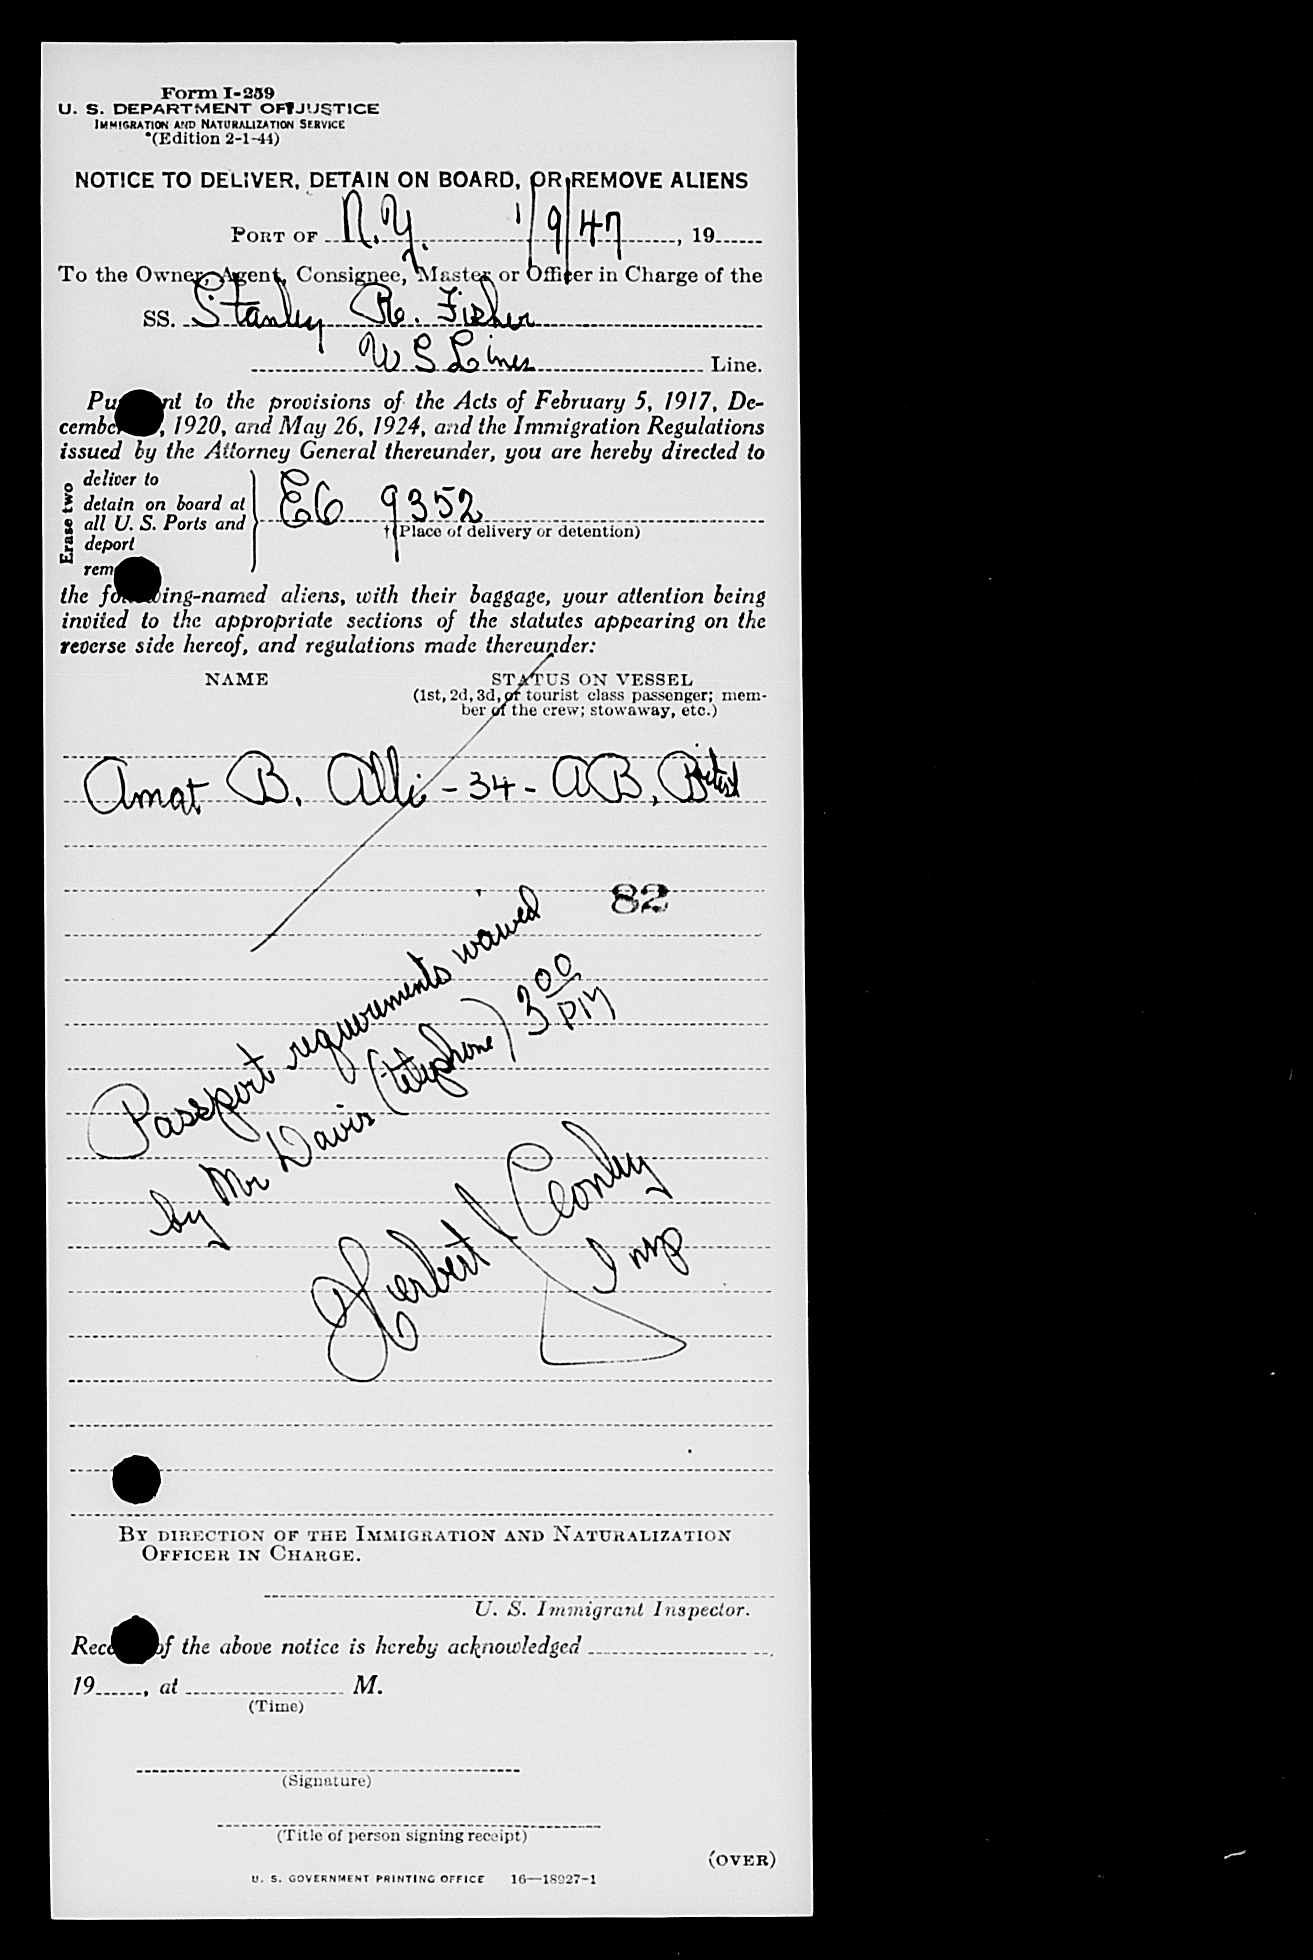 Form I-259
U. S. DEPARTMENT OF JUSTICE
IMMIGRATION AND NATURALIZATION SERVICE
(Edition 2-1-44)
NOTICE TO DELIVER, DETAIN ON BOARD, OR REMOVE ALIENS
PORT OF N.Y. 1/9/47, 19
To the Owner, Agent, Consignee, Master or Officer in Charge of the
SS. Stanley R. Fisher
U S Lines Line.
Pu nt to the provisions of the Acts of February 5, 1917, De-
cembe , 1920, and May 26, 1924, and the Immigration Regulations
issued by the Attorney General thereunder, you are hereby directed to
Erase two
deliver to
detain on board at
all U. S. Ports and
deport
rem
E6 9352
†(Place of delivery or detention)
the fo ing-named aliens, with their baggage, your attention being
invited to the appropriate sections of the statutes appearing on the
reverse side hereof, and regulations made thereunder:
NAME STATUS ON VESSEL
(1st, 2d, 3d, or tourist class passenger; mem-
ber of the crew; stowaway, etc.)
Amat B. Alli - 34 - AB, British
82
Passport requirements waived
by Mr Davis (telephone) 3 00 PM
Herbert Conley
Insp
BY DIRECTION OF THE IMMIGRATION AND NATURALIZATION
OFFICER IN CHARGE.
U. S. Immigrant Inspector.
Rece of the above notice is hereby acknowledged
19, at M.
(Time)
(Signature)
(Title of person signing receipt)
(OVER)
U. S. GOVERNMENT PRINTING OFFICE 16—18927-1